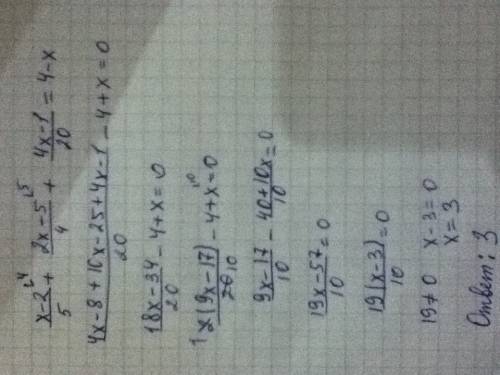 x-2/5 + 2x-5/4 + 4x-1/20 = 4-x
4x-8+10x-25+4x-1/20 - 4+x=0
18x-34/20 - 4+x=0
2(9x-17)/20 - 4+x=0
9x-17-40+10x/10=0
19x-57/10=0
19(x-3)/10=0
19≠0 x-3=0
x=3
Ответ: 3